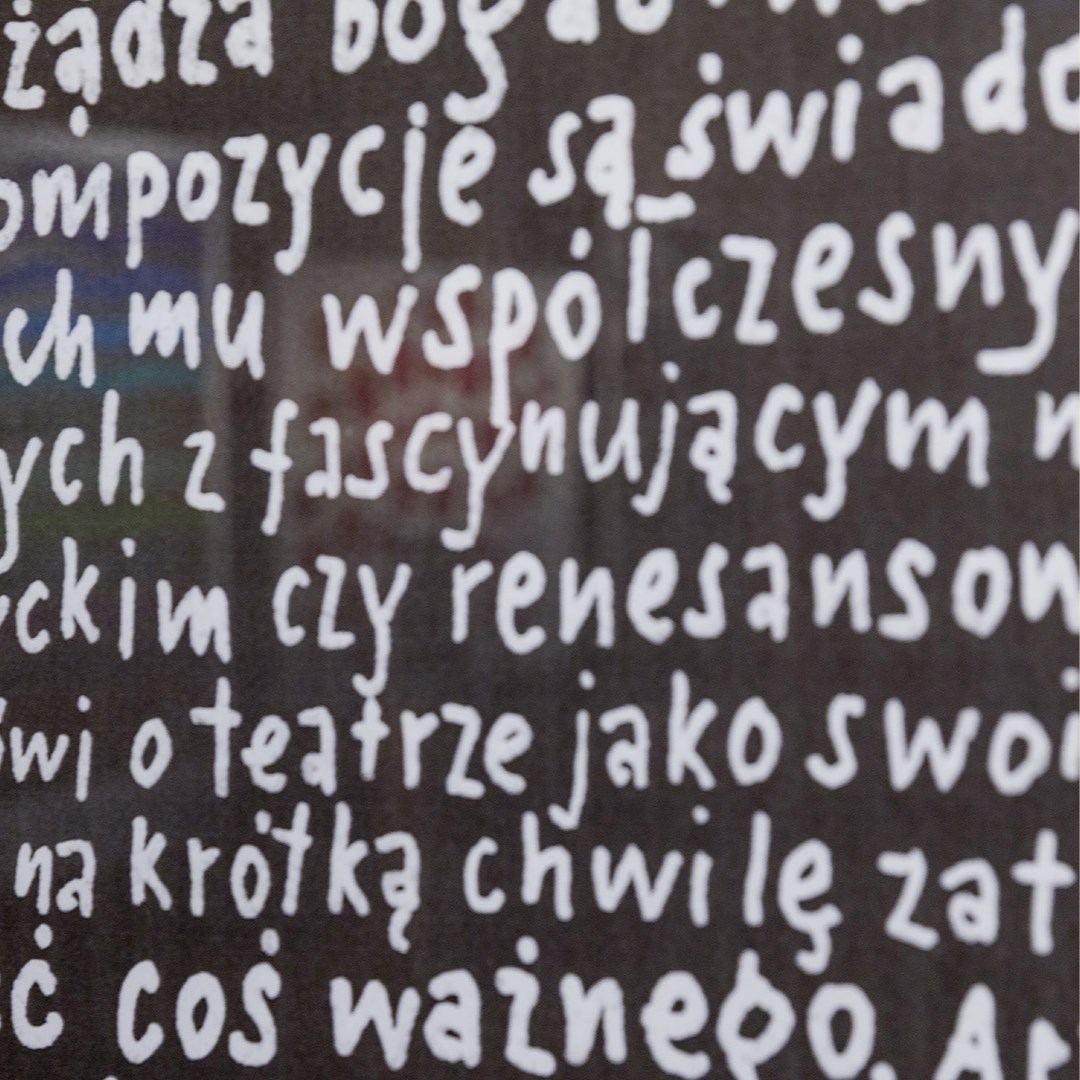 żądza bogac
ompozycje są świado
ch mu współczesny
ych z fascynującym
yckim czy renesansow
wi o teatrze jako swoi
na krótką chwilę zat
ć coś ważnego. A